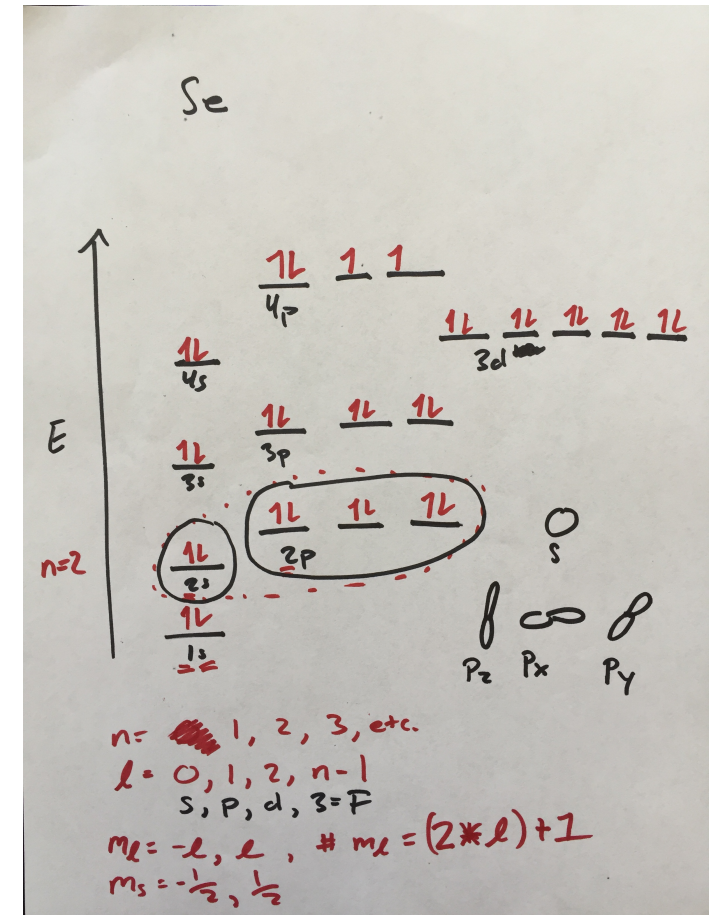 Se
1L 1 1
4p
1L 1L 1L 1L 1L
3d
1L
4s
E
1L 1L 1L
3p
1L
3s
1L 1L 1L
2p
n=2
1L
2s
s
1L
1s
Pz Px Py
n= 1, 2, 3, etc.
l= 0, 1, 2, n-1
s, p, d, 3=F
ml= -l, l, # ml = (2*l)+1
ms = -1/2, 1/2